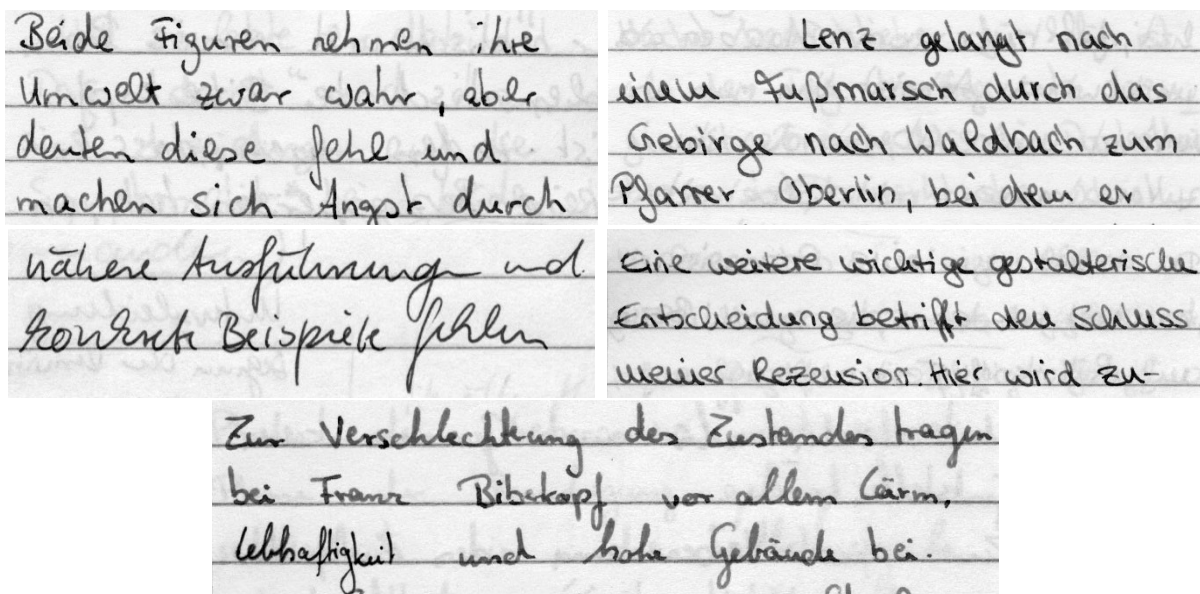 Beide Figuren nehmen ihre
Umwelt zwar wahr, aber
deuten diese fehl und
machen sich Angst durch
Lenz gelangt nach
einem Fußmarsch durch das
Gebirge nach Waldbach zum
Pfarrer Oberlin, bei dem er
nähere Ausführungen und
konkrete Beispiele fehlen
Eine weitere wichtige gestalterische
Entscheidung betrifft den Schluss
meiner Rezension. Hier wird zu-
Zur Verschlechterung des Zustandes tragen
bei Franz Biberkopf vor allem Lärm,
Lebhaftigkeit und hohe Gebäude bei.